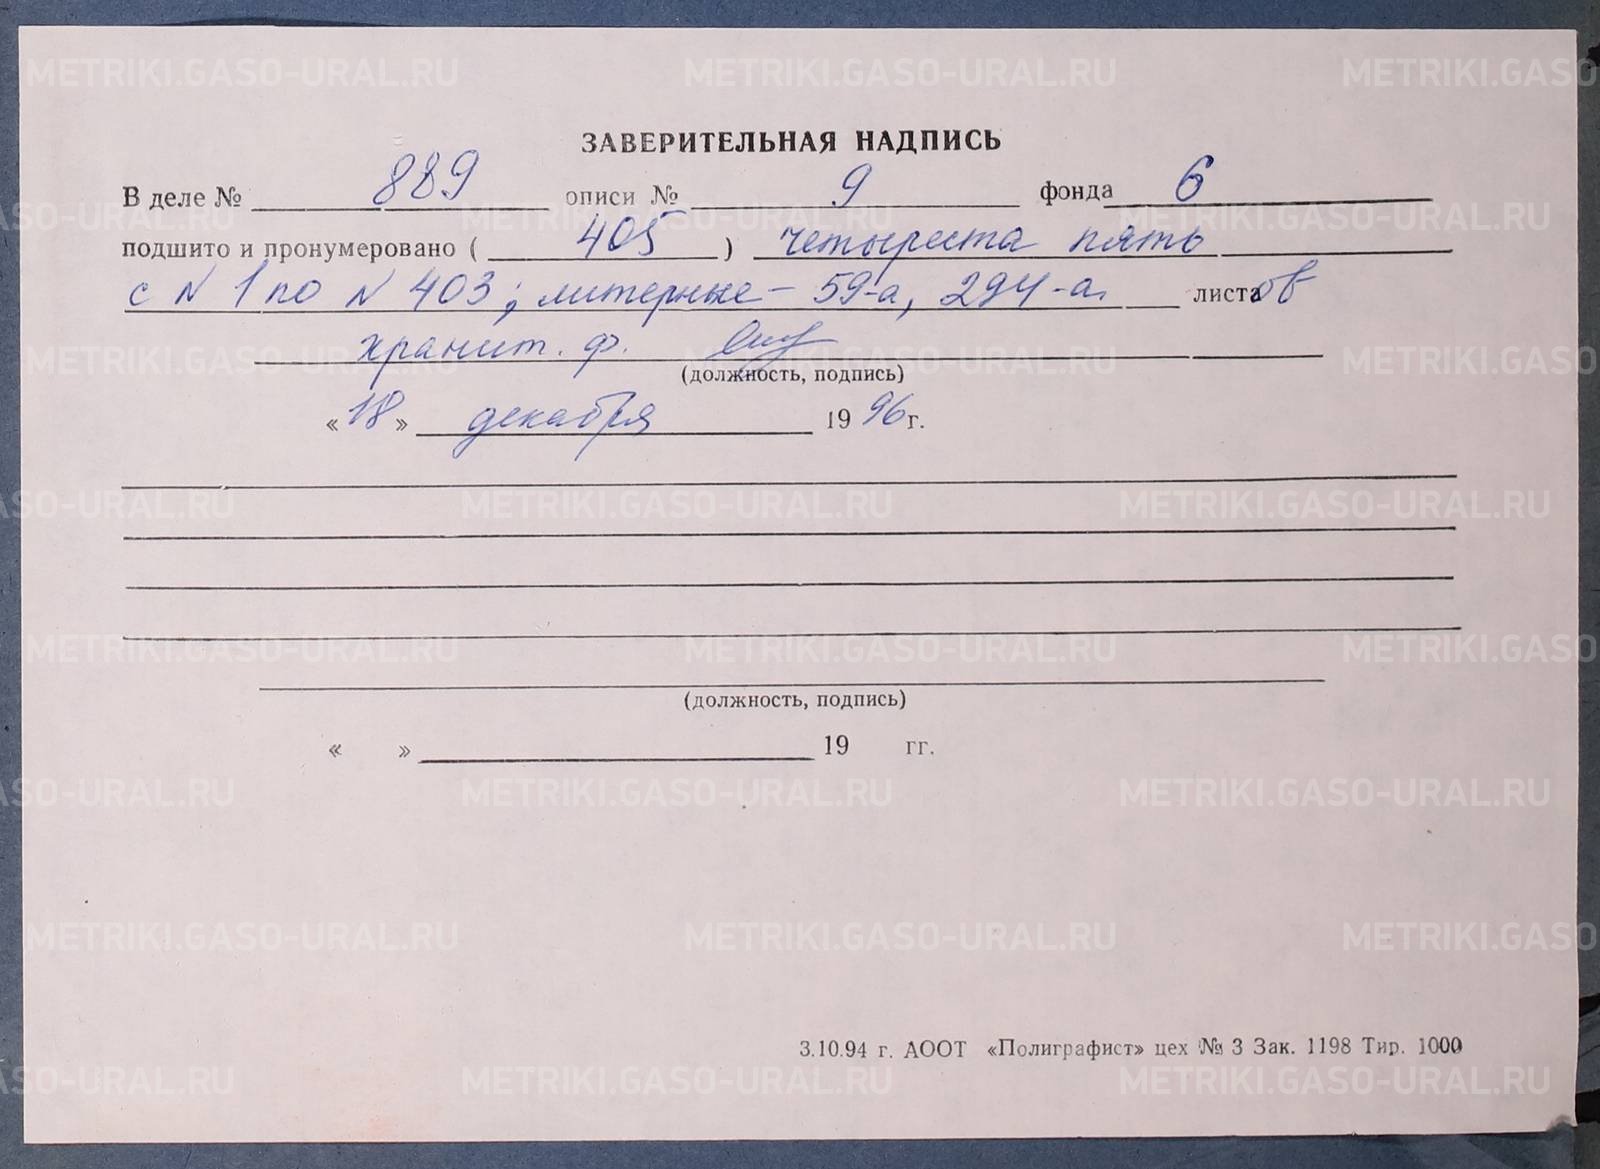 ЗАВЕРИТЕЛЬНАЯ НАДПИСЬ
В деле № 889 описи № 9 фонда 6
подшито и пронумеровано ( 405 ) четыреста пять
с N 1 по N 403; литерные – 59-а, 294-а, листов
хранит. ф.
(должность, подпись)
« 18 » декабря 1996 г.
(должность, подпись)
« » 19 гг.
3.10.94 г. АООТ «Полиграфист» цех № 3 Зак. 1198 Тир. 1000
METRIKI.GASO-URAL.RU